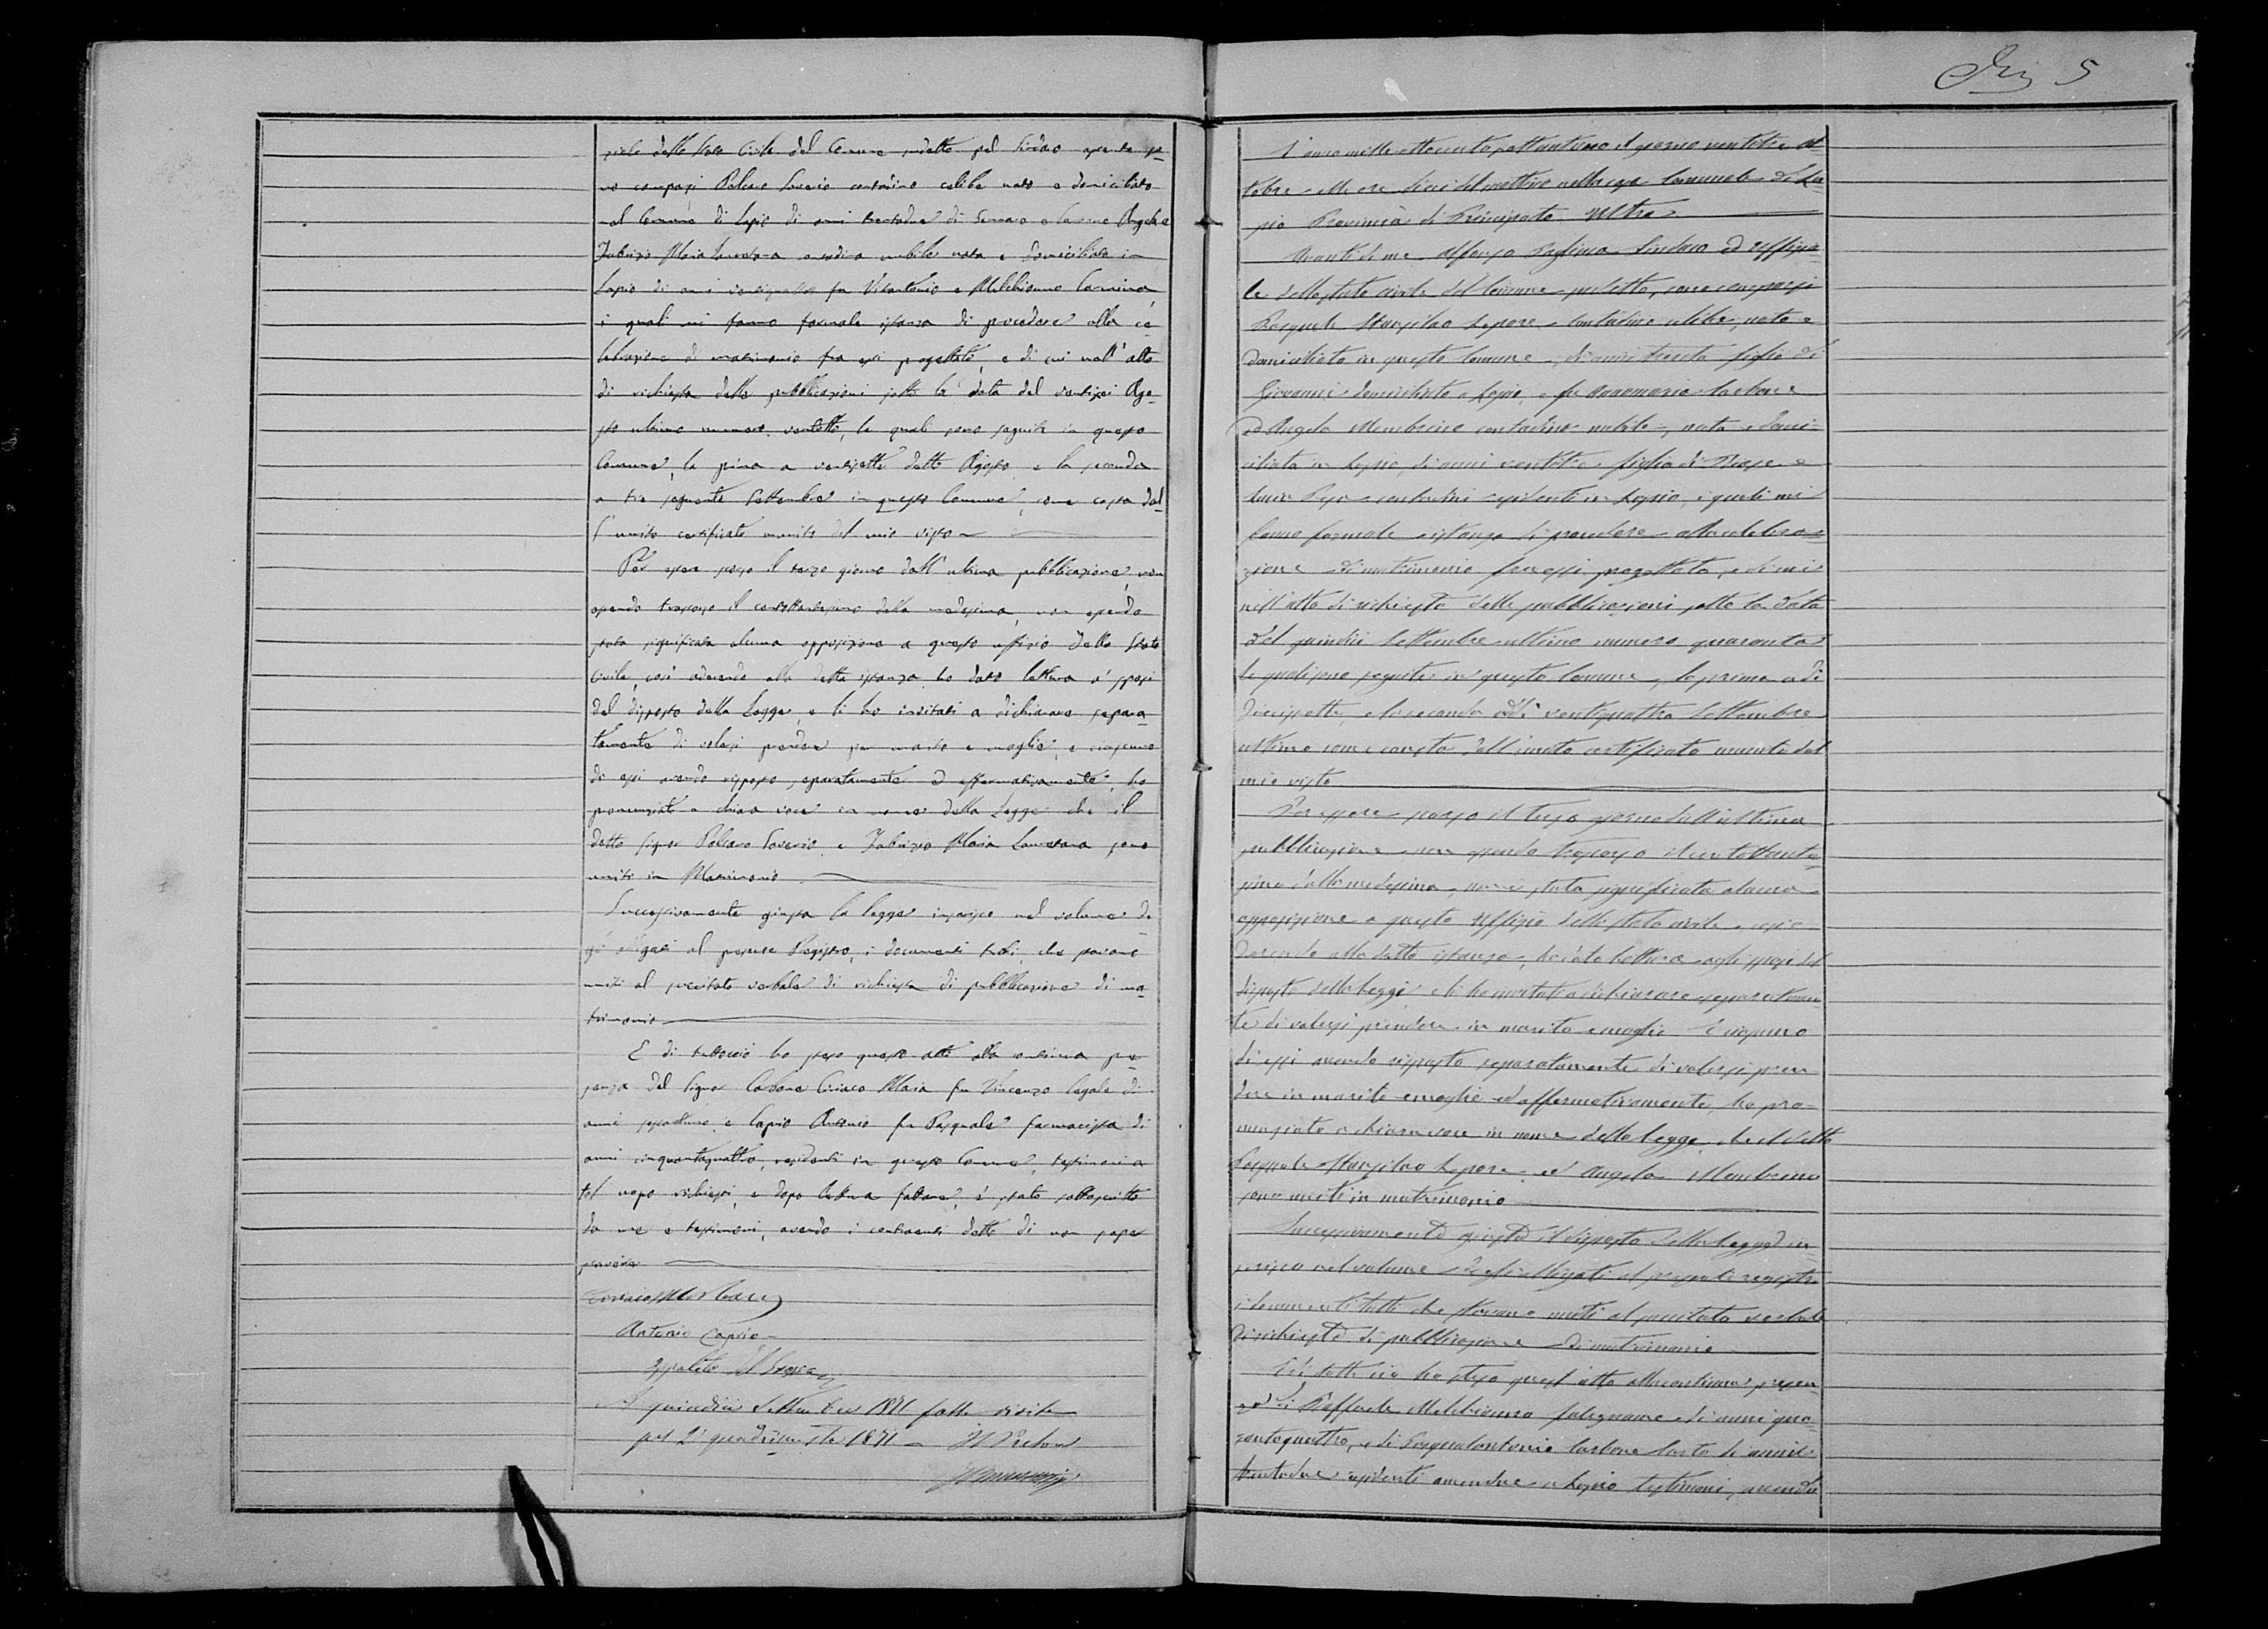 ziale dello Stato Civile del Comune sudetto pel Sindaco assente so-
no comparsi Polcaro Saverio contadino celibe nato e domiciliato
nel Comune di Lapio di anni trentadue di Gennaro e Carbone Angela e
Fabrizio Maria Lauretana contadina nubile nata e domiciliata in
Lapio di anni ventiquattro fu Vitantonio e Melchionno Carmina,
i quali mi fanno formale istanza di procedere alla ce-
lebrazione di matrimonio fra essi progettato, e di cui nell'atto
di richiesta delle pubblicazioni sotto la data del ventisei Ago-
sto ultimo numero ventotto, le quali sono seguite in questo
Comune, la prima a ventisette detto Agosto e la seconda
a tre seguente Settembre in questo Comune, come costa dal-
l'unito certificato munito del mio visto
Per essere scorso il terzo giorno dall'ultima pubblicazione, non
essendo trascorso il centottantesimo dalla medesima, non essendo
stata significata alcuna opposizione a questo uffizio dello Stato
Civile, così aderendo alla detta istanza ho dato lettura a' sposi
del disposto della Legge, e li ho invitati a dichiarare separa-
tamente di volersi prendere per marito e moglie, e ciascuno
di essi avendo risposto separatamente ed affermativamente, ho
pronunziato a chiara voce in nome della Legge che il
detto signor Polcaro Saverio e Fabrizio Maria Lauretana sono
uniti in Matrimonio
Successivamente giusta la legge inserisco nel volume de-
gli allegati al presente Registro, i documenti tutti che stavano
uniti al precitato verbale di richiesta di pubblicazione di ma-
trimonio
E di tuttociò ho steso questo atto alla continua pre-
senza del signor Carbone Ciriaco Maria fu Vincenzo legale di
anni sessantuno e Caprio Antonio fu Pasquale farmacista di
anni cinquantaquattro, residenti in questo Comune, testimoni a
tal uopo richiesti, e dopo lettura fattane, è stato sottoscritto
da me e testimoni, avendo i contraenti detto di non saper
scrivere
Ciriaco Ma Carbone
Antonio Caprio
Ippolito
A quindici Settembre 1871 fatta visita
pel 2° quadrimestre 1871 Il Pretore
5
L'anno mille ottocento settantuno il giorno ventitre ot-
tobre alle ore dieci del mattino nella casa Comunale di La-
pio Provincia di Principato Ultra
Avanti di me Alfonso Sindaco ed uffizia-
le dello stato civile del Comune sudetto, sono comparsi
Pasquale Stanislao Lepore contadino celibe, nato e
domiciliato in questo Comune, di anni trenta figlio di
Giovanni domiciliato a Lapio, e fu Annamaria Carbone
ed Angela Membrino contadina nubile, nata e domi-
ciliata in Lapio, di anni ventitre figlia di Biase e
contadini residenti in Lapio, i quali mi
fanno formale istanza di procedere alla celebra-
zione di matrimonio fra essi progettato, e di cui
nell'atto di richiesta delle pubblicazioni sotto la data
del quindici Settembre ultimo numero quaranta
le quali sono seguite in questo Comune, la prima a dì
diecisette, e la seconda addì ventiquattro Settembre
ultimo come consta dall'unito certificato munito del
mio visto
Per essere scorso il terzo giorno dall'ultima
pubblicazione non essendo trascorso il centottante-
simo dalla medesima, non è stata significata alcuna
opposizione a questo Uffizio dello stato civile, così a-
derendo alla detta istanza, ho dato lettura agli sposi del
disposto della legge e li ho invitati a dichiarare separatamen-
te di volersi prendere in marito e moglie E ciascuno
di essi avendo risposto separatamente di volersi pren-
dere in marito e moglie ed affermativamente, ho pro-
nunziato a chiara voce in nome della legge che il detto
Pasquale Stanislao Lepore ed Angela Membrino
sono uniti in matrimonio
Successivamente giusta il disposto della legge in-
serisco nel volume degli allegati al presente registro
i documenti tutti che stavano uniti al precitato verbale
di richiesta di pubblicazione di matrimonio
E di tutto ciò ho steso quest'atto alla continua presen-
za di Raffaele Melchionno falegname di anni qua-
rantaquattro, e di Pasqualantonio Carbone sarto di anni
trentadue residenti amendue a Lapio testimoni, avendo